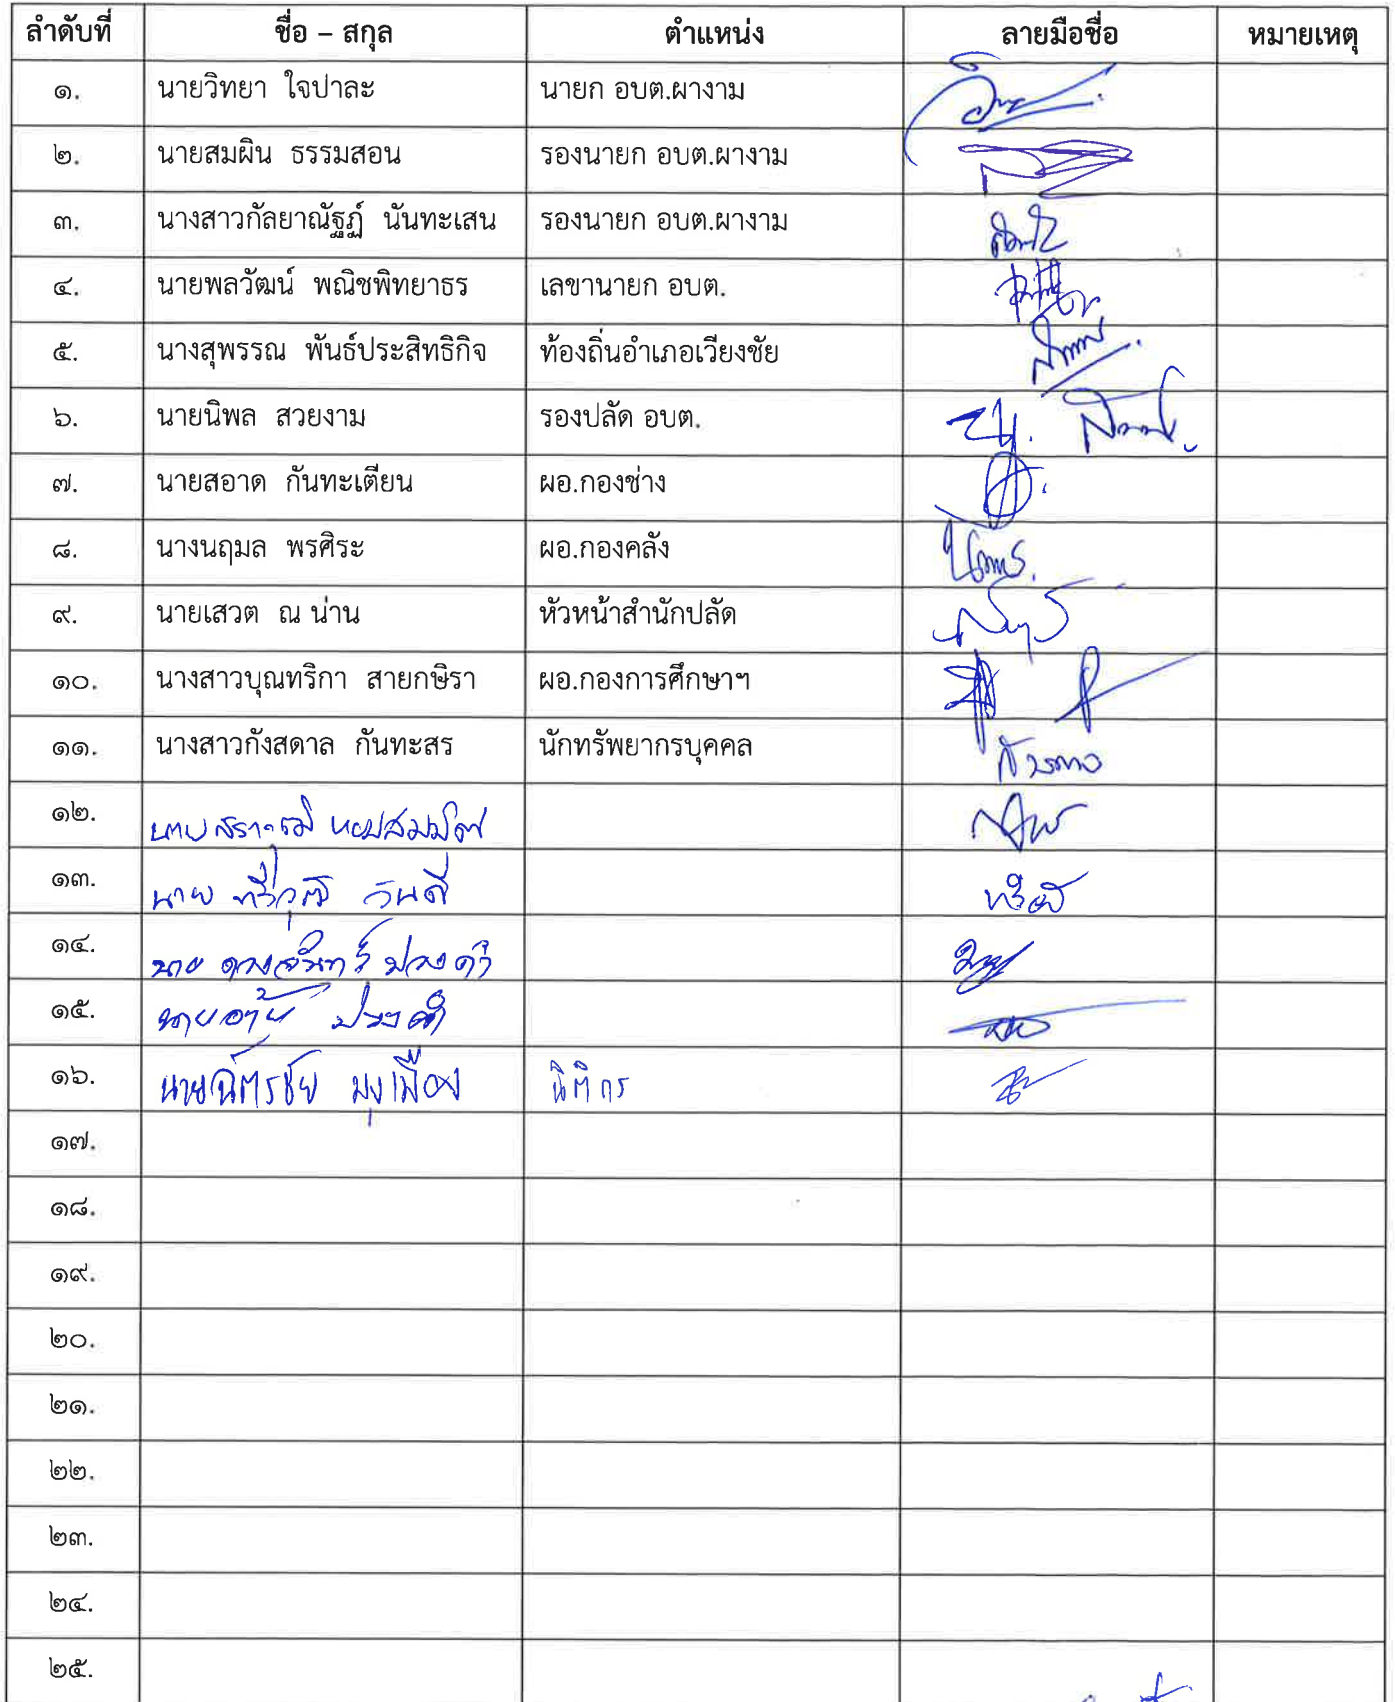 ลำดับที่ ชื่อ – สกุล ตำแหน่ง ลายมือชื่อ หมายเหตุ
๑. นายวิทยา ใจปาละ นายก อบต.ผางาม
๒. นายสมผิน ธรรมสอน รองนายก อบต.ผางาม
๓. นางสาวกัลยาณัฐฏ์ นันทะเสน รองนายก อบต.ผางาม
๔. นายพลวัฒน์ พณิชพิทยาธร เลขานายก อบต.
๕. นางสุพรรณ พันธ์ประสิทธิกิจ ท้องถิ่นอำเภอเวียงชัย
๖. นายนิพล สวยงาม รองปลัด อบต.
๗. นายสอาด กันทะเตียน ผอ.กองช่าง
๘. นางนฤมล พรศิระ ผอ.กองคลัง
๙. นายเสวต ณ น่าน หัวหน้าสำนักปลัด
๑๐. นางสาวบุณทริกา สายกษิรา ผอ.กองการศึกษาฯ
๑๑. นางสาวกังสดาล กันทะสร นักทรัพยากรบุคคล
๑๒. นาย
๑๓. นาย ทวีวุฒิ วันดี
๑๔. นาย ดวงจันทร์ ปวงคำ
๑๕. นาย
๑๖. นายฉัตรชัย มุงเมือง นิติกร
๑๗.
๑๘.
๑๙.
๒๐.
๒๑.
๒๒.
๒๓.
๒๔.
๒๕.